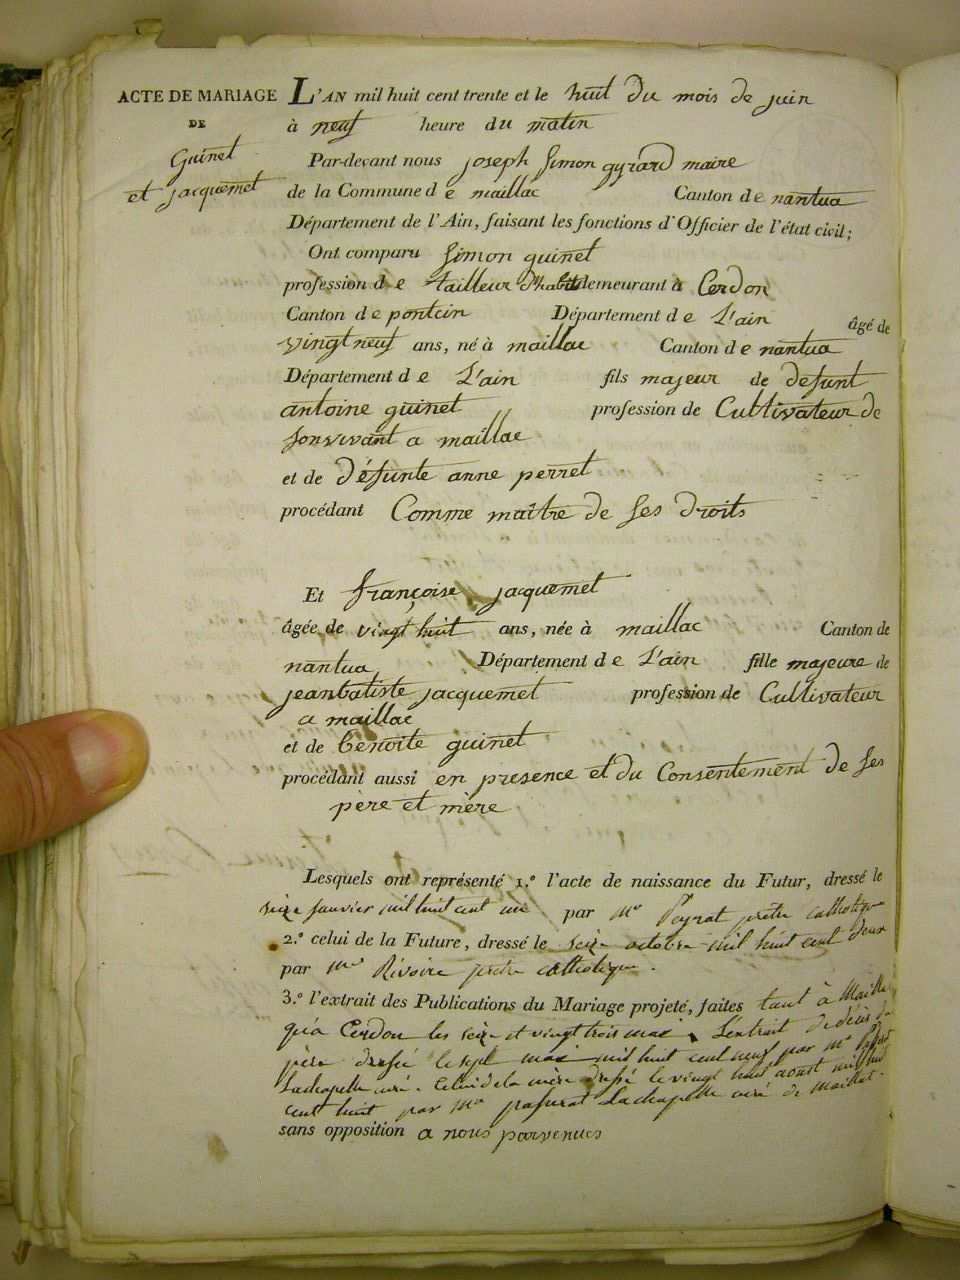 ACTE DE MARIAGE
DE
Guinet
et jacquemet
L'AN mil huit cent trente et le huit du mois de juin
à neuf heure du matin
Par-devant nous joseph Simon gyrard maire
de la Commune de maillac Canton de nantua
Département de l'Ain, faisant les fonctions d'Officier de l'état civil;
Ont comparu Simon guinet
profession de tailleur d'habit demeurant à Cerdon
Canton de poncin Département de L'ain âgé de
vingt neuf ans, né à maillac Canton de nantua
Département de L'ain fils majeur de defunt
antoine guinet profession de Cultivateur de
sonvivant a maillac
et de défunte anne perret
procédant Comme maître de ses droits
Et françoise jacquemet
âgée de vingt huit ans, née à maillac Canton de
nantua Département de L'ain fille majeure de
jeanbatiste jacquemet profession de Cultivateur
a maillac
et de benoite guinet
procédant aussi en presence et du Consentement de ses
père et mère
Lesquels ont représenté 1.º l'acte de naissance du Futur, dressé le
seize janvier mil huit cent un par Mr Peyrat prêtre catholique
2.º celui de la Future, dressé le seize octobre mil huit cent deux
par Mr Rivoire prêtre catholique.
3.º l'extrait des Publications du Mariage projeté, faites tant à Maillac
qu'a Cerdon les seize et vingt trois mai, L'extrait de décès du
père dressé le sept mai mil huit cent neuf par Mr
Lachapelle curé. Celui de la mère dressé le vingt huit aoust mil huit
cent huit par Mr Lachapelle curé de Maillat.
sans opposition a nous parvenues